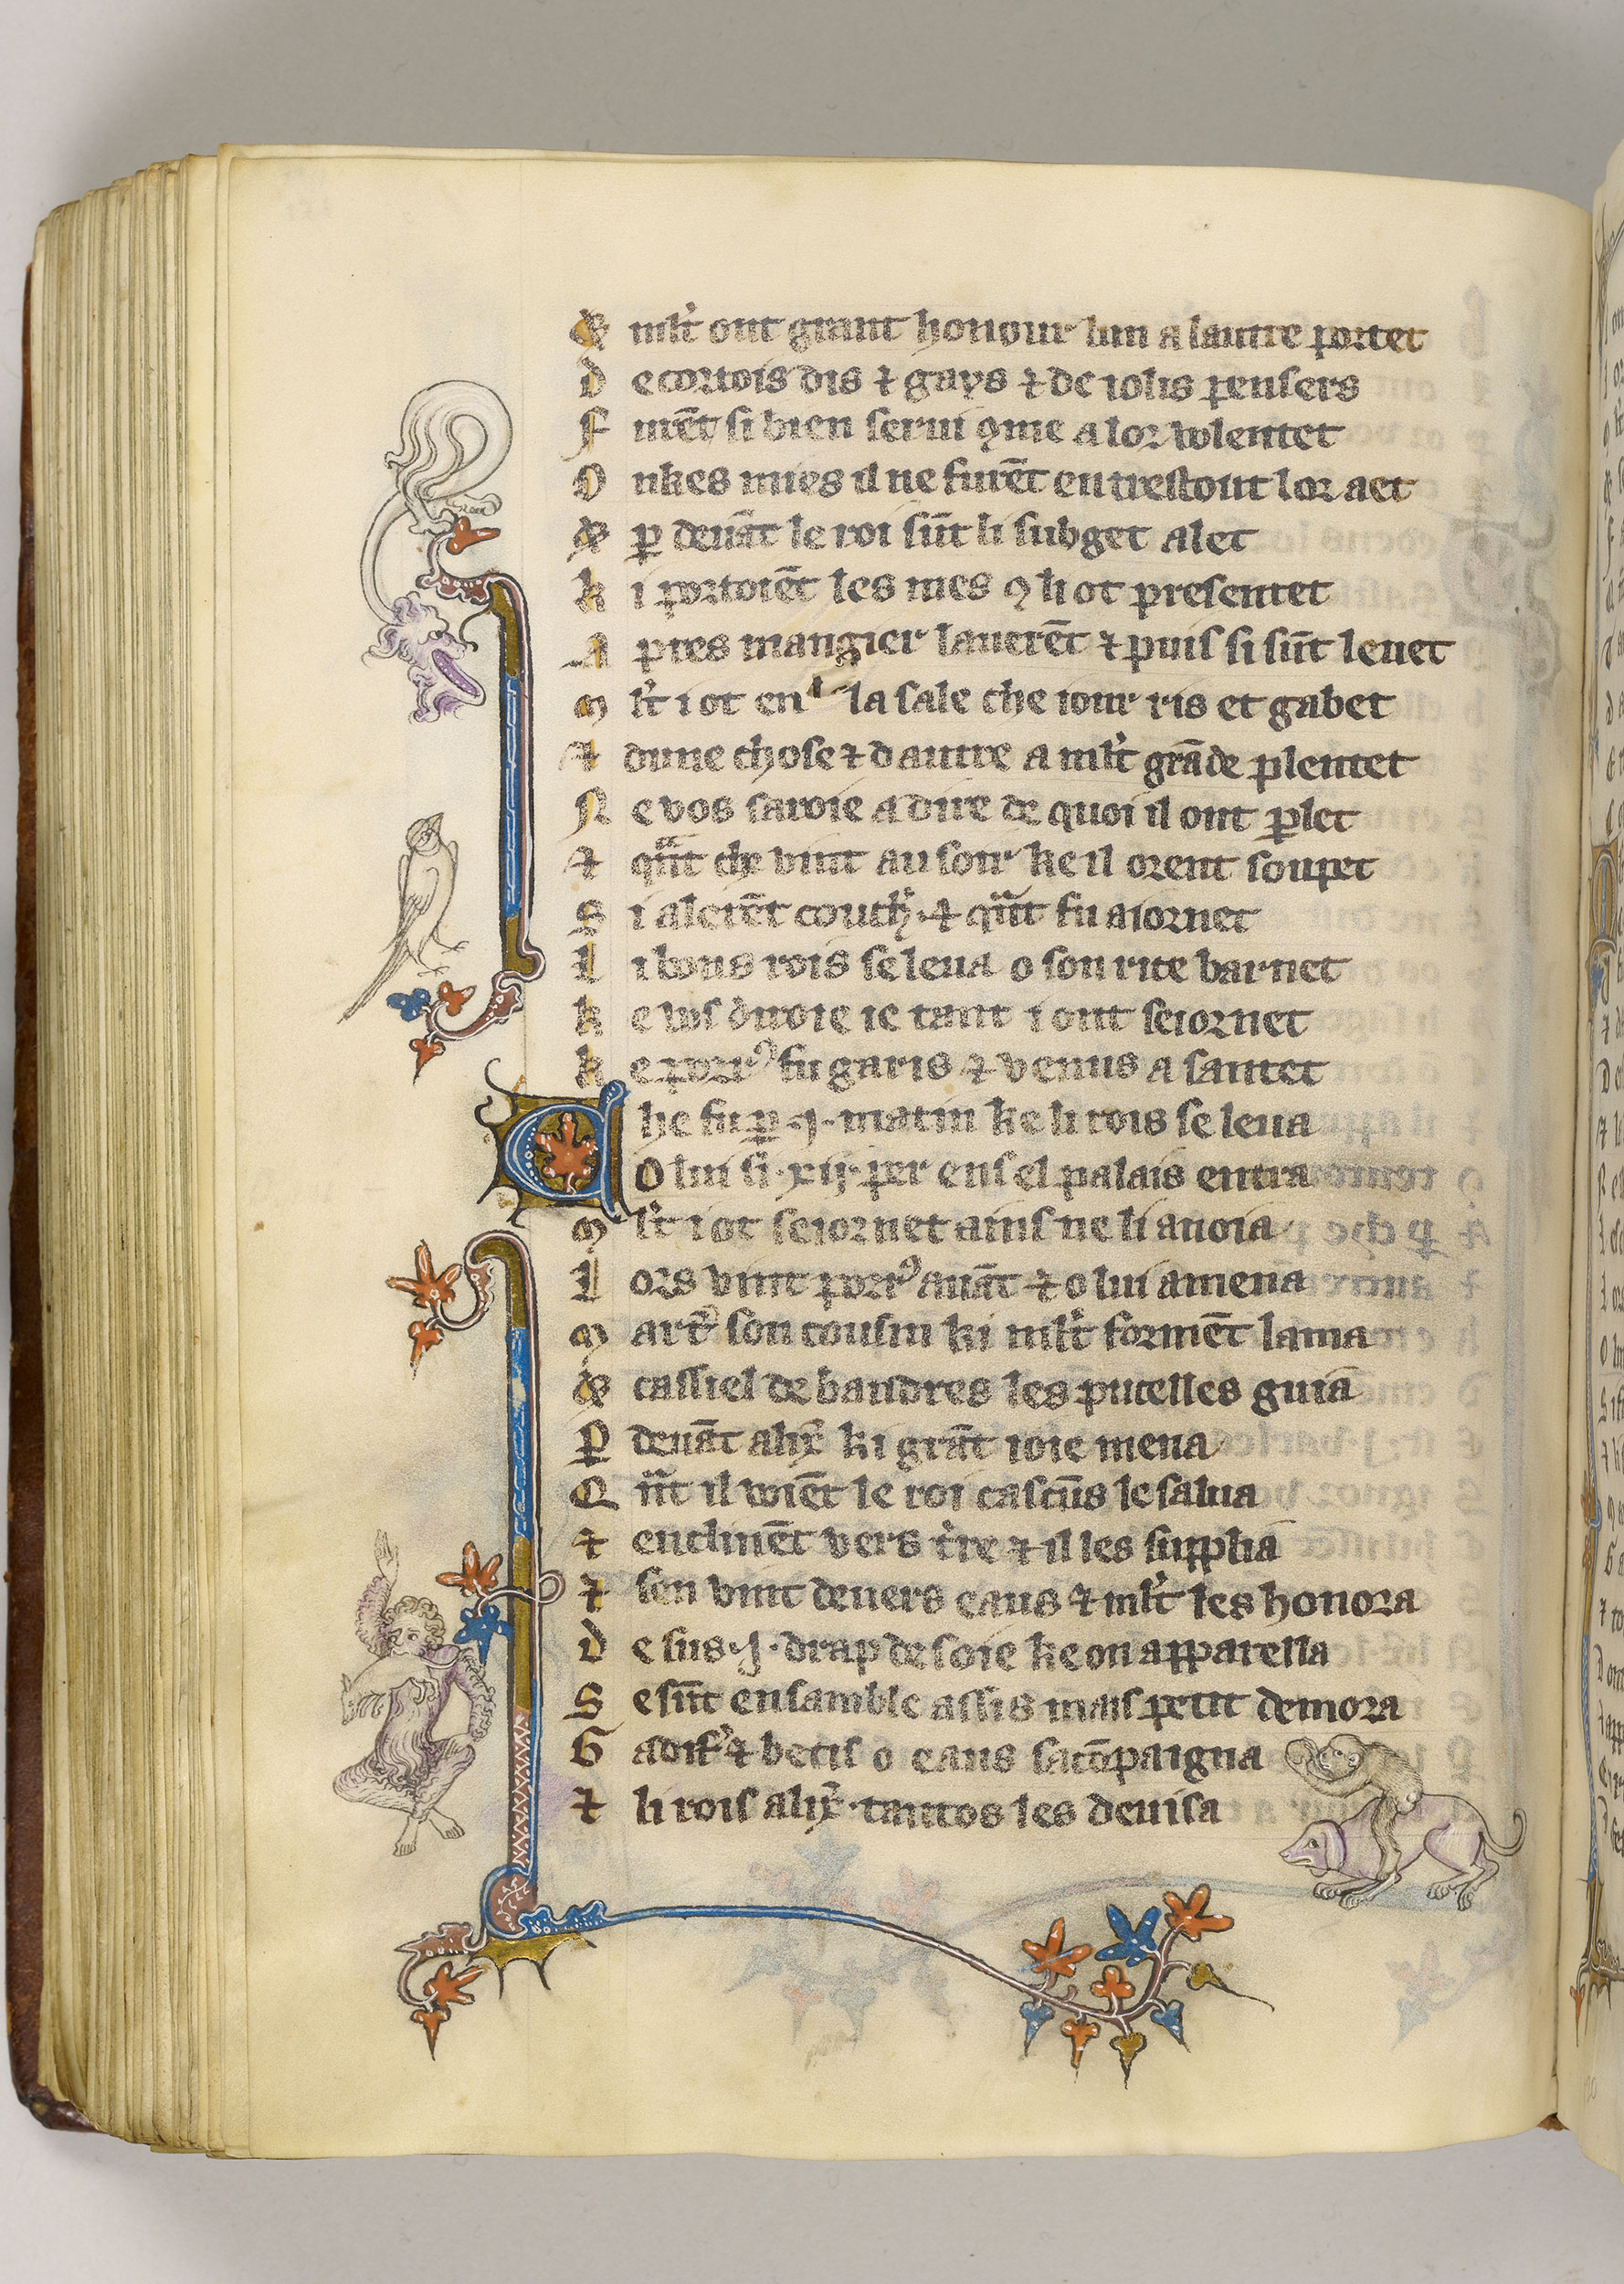 & ml't ont grant honour lun a lautre portet
D e cortois dis ⁊ gays ⁊ de iolis pensers
F urēt si bien serui ꝯme a lor volentet
O nkes mies il ne furēt en trestout lor aet
& ꝑ deuāt le roi sūt li subget alet
k i portoiēt les mes ꝯ li ot presentet
A pres mangier lauerēt ⁊ puis si sūt leuet
M l't i ot en la sale che iour ris et gabet
⁊ dune chose ⁊ dautre a ml't grāde plentet
N e vos saroie a dire de quoi il ont ꝑlet
⁊ qn̄t che vint au soir ke il orent soupet
S i alerēt couch' ⁊ qn̄t fu aiornet
L i bons rois se leua o son rice barnet
k e vos diroie ie tant i ont seiornet
k e porꝰ fu garis ⁊ venus a santet
C he fu ꝑ .j. matin ke li rois se leua
O lui si .xij. per ens el palais entra
M l't i ot seiornet ains ne li anoia
L ors vint porꝰ auāt ⁊ o lui amena
M artꝰ son cousin ki ml't formēt lama
& cassiel de bandres les pucelles guia
P deuāt alix' ki grāt ioie mena
Q n̄t il voiēt le roi cascūs le salua
⁊ enclinēt vers t're ⁊ il les supplia
⁊ sen vint deuers eaus ⁊ ml't les honora
D esus .j. drap de soie ke on apparella
S e sūt ensamble assis mais petit demora
G adifꝰ ⁊ betis o eaus sacōpaigna
⁊ li rois alix' tantos les deuisa